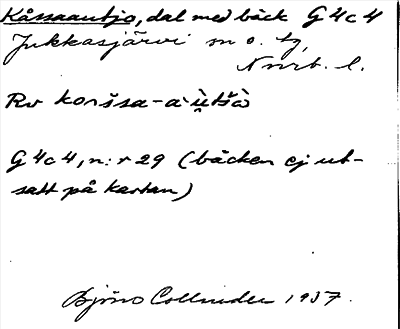 Kåssaautjo, dal med bäck G4c4
Jukkasjärvi sn o. tg,
Nrrb. l.
Rv korššsa-a
G4c4, n:r 29 (bäcken ej ut-
satt på kartan)
Björn Collinder 1937.